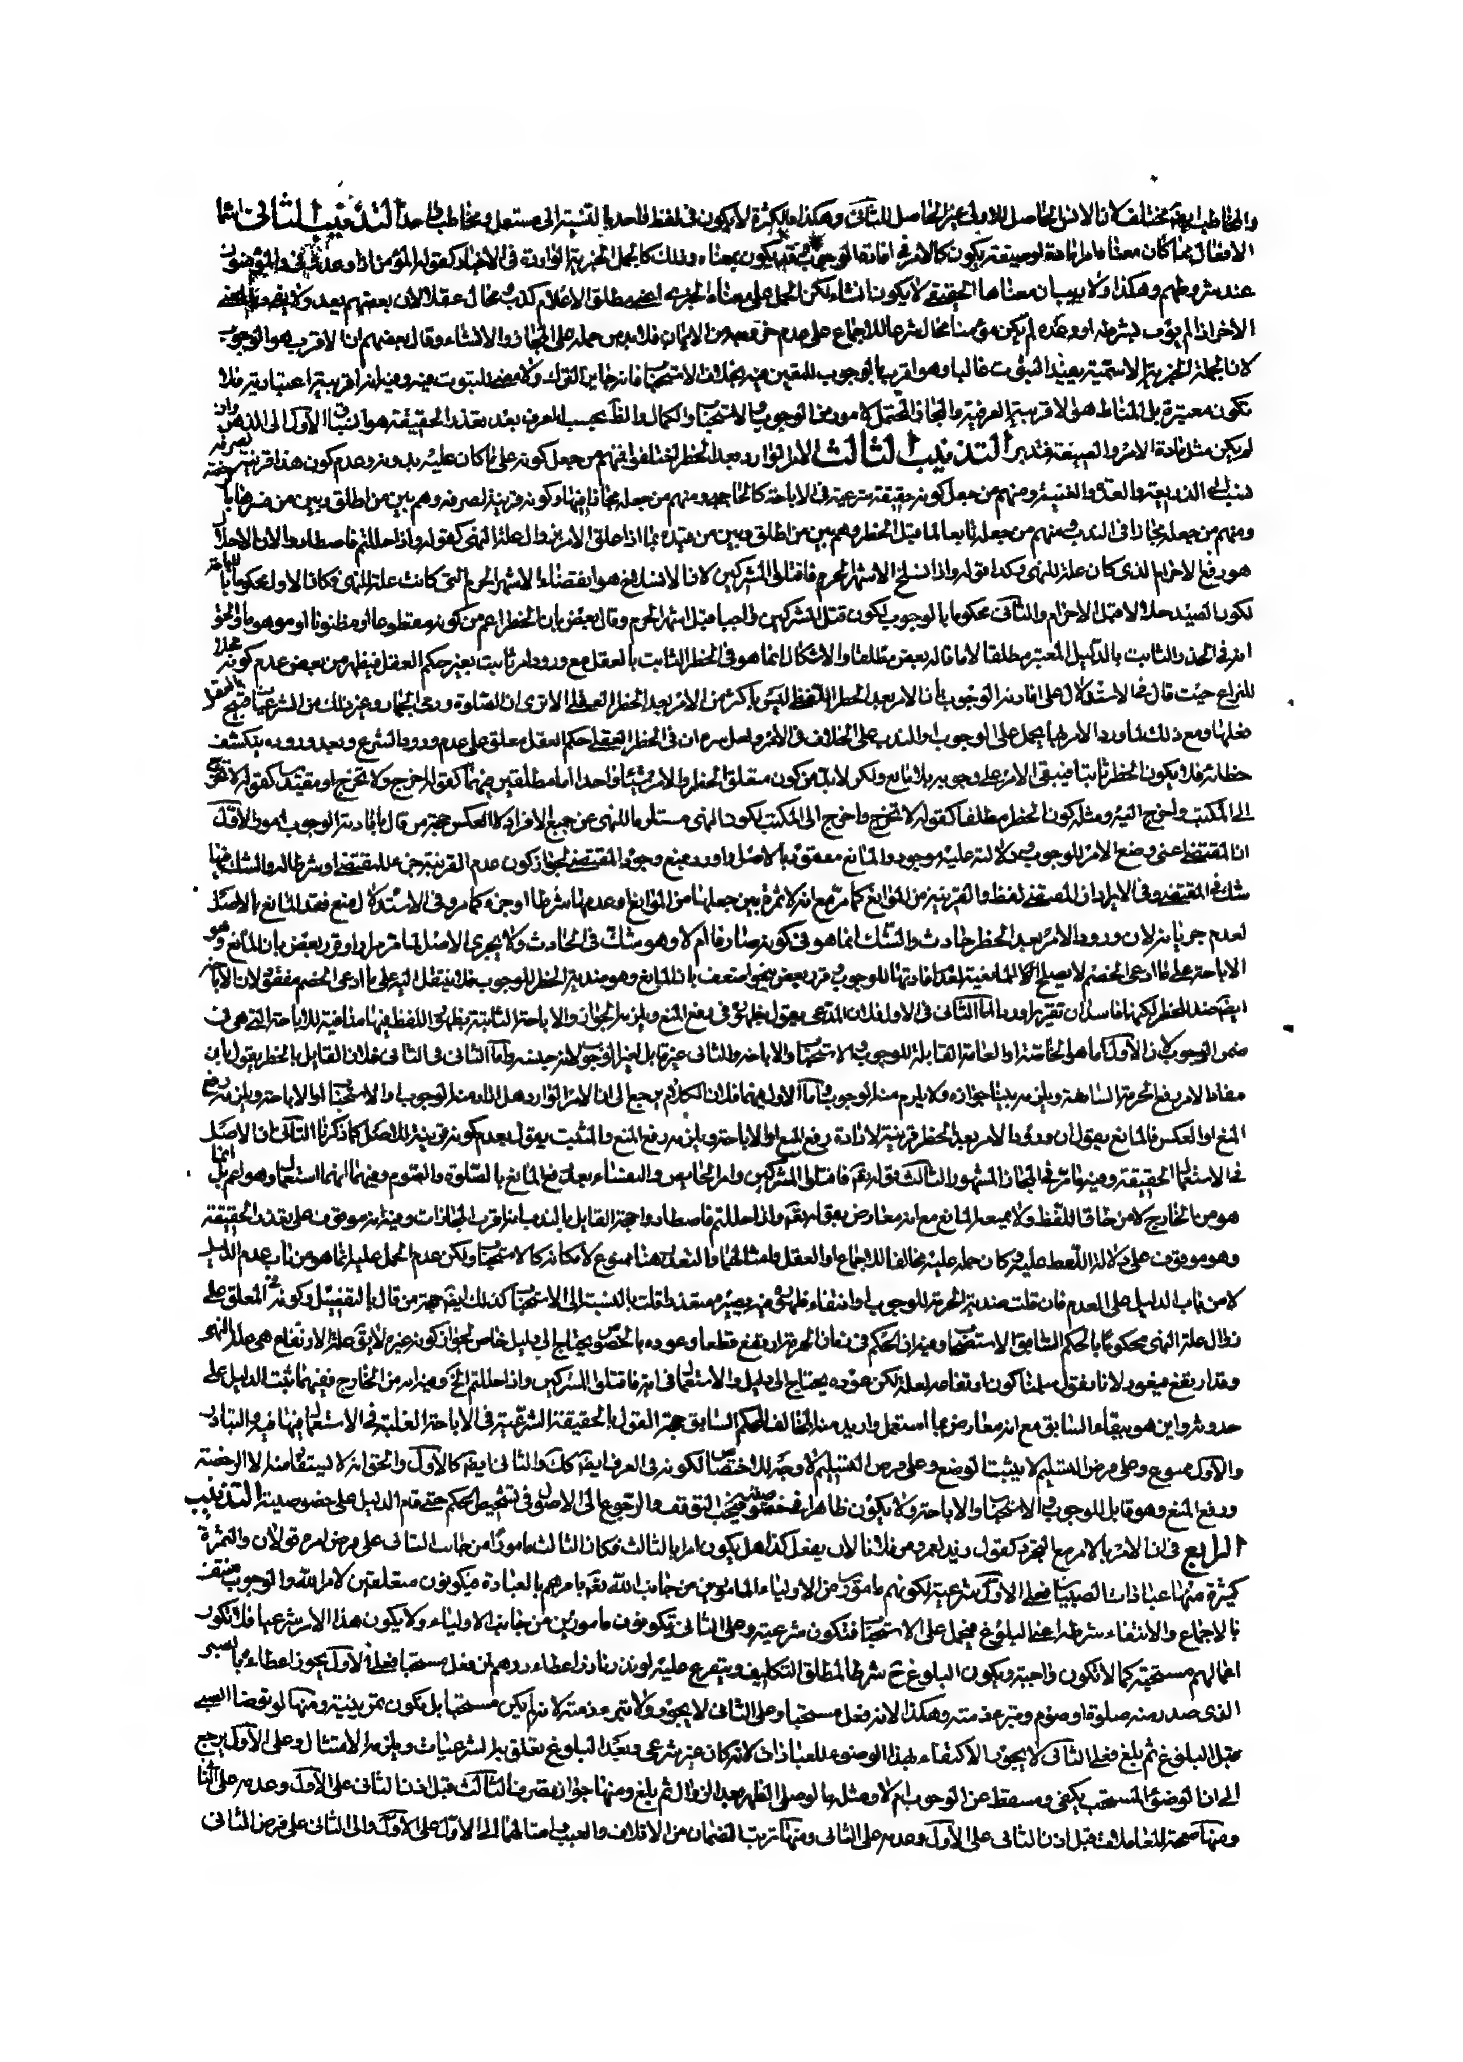 والمخاطب ايضا مختلف لان الانس الحاصل للاولى غير الحاصل للثانى وهكذا والكثرة لا يكون فى لفظ واحد بالنسبة الى مستعمل ومخاطب واحد التذنيب الثانى
الافعال بما كان معناه امرا مادة او صيغة يكون كالامر فى افادة الوجوب قد يكون بمعناه وذلك كالجمل الخبرية الواردة فى الاخبار كقوله المؤمن اذا وعد وفى والمؤمنون
عند شروطهم وهكذا ولا ريب ان معناها الحقيقى لا يكون انشاء لكن الحمل على معناه الخبرى اعنى مطلق الاعلام كذب ومحال عقلا لان بعضهم يعد ولا يفى
الاخر اذا لم يوف بشرطه او وعده لم يكن مؤمنا محال شرعا للاجماع على عدم خروجه من الايمان فلا بد من حمله على المجاز والانشاء وقال بعضهم ان الاقرب هو الوجوب
لان الجملة الخبرية الاسمية يفيد الثبوت غالبا وهو اقرب بالوجوب للتعين فيه بخلاف الاستحباب فانه جايز الترك ولا معنى للثبوت فيه وفيه انه اقربية اعتبارية فلا
تكون معتبرة بل المناط هو الاقربية العرفية والمجاز المحتمل الامور من الوجوب والاستحباب والكمال والظ بحسب العرف بعد تعذر الحقيقة هو اثبات الاول الى الذهن وان
لم يكن مثل مادة الامر والصيغة فتدبر التذنيب الثالث الامر الوارد بعد الحظر اختلفوا فمنهم من جعل كونه على ما كان عليه بدونه وعدم كون هذا قرينة تصرفه
ومنهم من جعل كونه حقيقة شرعية فى الاباحة كالحاجبى ومنهم من جعله مجازا فيها وكونه قرينة لصرفه وهم بين من اطلق وبين من
ومنهم من جعله مجازا فى الندب ومنهم من جعله تابعا لما قبل الحظر وهم بين من اطلق وبين من قيده بما اذا علق الامر بزوال علة النهى كقوله واذا حللتم فاصطادوا لان الاحلال
هو رفع الاحرام الذى كان علة للنهى وكذا قوله واذا انسلخ الاشهر الحرم فاقتلوا المشركين لان الانسلاخ هو انقضاء الاشهر الحرم التى كانت علة للنهى فكان الاول محكوما بالاباحة
لكون الصيد حلالا قبل الاحرام والثانى محكوما بالوجوب لكون قتل المشركين واجبا قبل اشهر الحرم وقال بعض بان الحظر اعم من كونه مقطوعا او مظنونا او موهوما والحق
انه فى الحظر الثابت بالدليل المعتبر مطلقا لا ما قاله بعض مطلقا والاشكال انما هو فى الحظر الثابت بالعقل مع ورود امر ثابت بغير حكم العقل فيظهر من بعض عدم كونه محلا
للنزاع حيث قال فى الاستدلال على افادته الوجوب بان الامر بعد الحظر اللفظى ليس باكثر من الامر بعد الحظر العقلى الا ترى ان الصلوة ورمى الجمار وغير ذلك من الشرعيات قبيح بالعقل
فعلها ومع ذلك لما ورد الامر بها يحمل على الوجوب او الندب على الخلاف فى الامر ولعل سره ان فى الحظر العقلى حكم العقل معلق على عدم ورود الشرع وبعد وروده ينكشف
خطائه فلا يكون الحظر ثابتا فيبقى الامر على وجوبه بلا مانع ولكن لا بد من كون متعلق الحظر والامر شيئا واحدا اما مطلقين فيهما كقوله اخرج ولا تخرج او مقيد بهما كقوله لا تخرج
الى المكتب واخرج اليه ومثله كون الحظر مطلقا كقوله لا تخرج واخرج الى المكتب لكون النهى مستلزما للنهى عن جميع الافراد لا العكس حجة من قال بافادته الوجوب امور الاول
ان المقتضى اعنى وضع الامر للوجوب ودلالته عليه موجود والمانع مفقود بالاصل واورد بمنع وجود المقتضى لجواز كون عدم القرينة جزء للمقتضى او شرطا له والشك فيها
شك فى المقتضى وفى الايراد ان المقتضى لفظ والقرينة من الموانع كما مر مع انه لا ثمرة بين جعلها من الموانع او عدمها شرطا او جزء كما مر وفى الاستدلال منع فقد المانع بالاصل
لعدم جريانه لان ورود الامر بعد الحظر حادث والشك انما هو فى كونه صارفا ام لا وهو شك فى الحادث ولا يجرى الاصل لما مر مرارا وقرر بعض بان المانع وهو
الاباحة على ما ادعى الخصم لا يصلح للمانعية لعدم افادتها للوجوب وقرر بعض بنحو اضعف بان المانع وهو ضدية الحظر للوجوب فلا ينتقل اليه على ما ادعى الخصم مفقود لان الاباحة
ايضا ضد للحظر لكنها فاسدان تقريرا وردا اما الثانى فى الاول فلان المدعى يقول بظهوره فى رفع المنع ويلزمه الجواز والاباحة الثابتة بظهور اللفظ فيها منافية للاباحة التى هى فى
ضمن الوجوب لان الاول اما هو الخاصة او العامة القابلة للوجوب والاستحباب والاباحة والثانى غير قابل لغير الوجوب لانه جنسه واما الثانى فى الثانى فلان القايل بالحظر يقول بان
مفاد الامر رفع الحرمة السابقة ويلزمه بينا جوازه ولا يلزم منه الوجوب واما الاول فيهما فلان الكلام يرجع الى ان الامر الوارد هل المراد منه الوجوب او الاستحباب او الاباحة ويلزمه رفع
المنع او العكس فالمانع يقول ان ورود الامر بعد الحظر قرينة لارادة رفع المنع او الاباحة ويلزمه رفع المنع والمثبت يقول بعدم كونه قرينة للاصل كما ذكرنا الثانى ان الاصل
فى الاستعمال الحقيقة وفيه ما مر فى المجاز المشهور الثالث قوله تعالى فاقتلوا المشركين وامر الحايض والنفساء بعد رفع المانع بالصلوة والصوم وفيهما انهما استعمال وهو اعم بل انما
هو من الخارج لا من حاق اللفظ ولا يبعد المانع مع انه معارض بقوله تعالى واذا حللتم فاصطادوا حجة القايل بالندب انه اقرب المجازات وفيه انه موقوف على تعذر الحقيقة
وهو موقوف على دلالة اللفظ عليه وكان حمله عليه مخالفا للاجماع او العقل وامثالهما والتعذر هنا ممنوع لامكانه كالاستحباب ولكن عدم الحمل عليه انما هو من باب عدم الدليل
لا من باب الدليل على العدم فان قلت ضدية الحرمة للوجوب وانتفاء ظهوره فيه يصيره متعذرا قلت بالنسبة الى الاستحباب كذلك ايضا حجة من قال بالتفصيل وكونه فى المعلق على
زوال علة النهى محكوما بالحكم السابق الاستصحاب وفيه ان الحكم فى زمان الحرمة ارتفع قطعا وعوده بالخصوص يحتاج الى دليل خاص لجواز كونه غيره لا يق علة الارتفاع هى علة النهى
وقد ارتفع فيعود لانا نقول سلمنا كون ارتفاعه لعلة لكن عوده يحتاج الى دليل والاستعمال فى اية فاقتلوا المشركين واذا حللتم الخ وفيه انه من الخارج ففيهما ثبت الدليل على
حدوثه واين هو ببقاء السابق مع انه معارض بما استعمل واريد منه المخالف للحكم السابق حجة القول بالحقيقة الشرعية فى الاباحة الغلبة فى الاستعمال فيها فيه والتبادر
والاول ممنوع وعلى فرض التسليم لا يثبت الوضع وعلى فرض التسليم لا وجه للاختصاص لكونه فى العرف ايضا كك والثانى ايضا كالاول والحق انه لا يستفاد منه الا الرخصة
ورفع المنع وهو قابل للوجوب والاستحباب والاباحة ولا يكون ظاهرا فى خصوصية فيجب التوقف والرجوع الى الاصول فى تشخيص الحكم حتى قام الدليل على خصوصيته التذنيب
الرابع فى ان الامر بالامر مع التجرد كقول زيد لعمرو مر فلانا لان يفعل كذا هل يكون امرا بالثالث فكان الثالث مامورا من جانب الثانى على فرض امره ق ولان والثمرة
كثيرة منها عبادات الصبيان فعلى الاول شرعية لكونهم مامورين من الاولياء المامورين من جانب الله تعالى بامرهم بالعبادة فيكونون متعلقين لامر الله والوجوب منتف
بالاجماع والانتفاء شرطه اعنى البلوغ فيحمل على الاستحباب فتكون شرعية وعلى الثانى يكونون مامورين من جانب الاولياء ولا يكون هذا الامر شرعيا فلا تكون
اعمالهم مستحبة كما لا تكون واجبة ويكون البلوغ ح شرطا لمطلق التكليف ويتفرع عليه لو نذر نادر اعطاء درهم لمن فعل مستحبا فعلى الاول يجوز اعطاءه بالصبى
الذى صدر منه صلوة او صوم وتبرء ذمته وهكذا لانه فعل مستحبا وعلى الثانى لا يجوز ولا تبرء ذمته لانه لم يكن مستحبا بل تكون تمرينية ومنها لو توضا الصبى
قبل البلوغ ثم بلغ فعلى الثانى لا يجوز الاكتفاء بهذا الوضوء للعبادات لانه كان غير شرعى وبعد البلوغ تعلق به الشرعيات ويلزمه الامتثال وعلى الاول يرجع
الى ان الوضوء المستحب يكفى ويسقط عن الوجوب ام لا ومثله ما لو صلى الظهر بعد الزوال ثم بلغ ومنها جواز تصرف الثالث قبل اذن الثانى على الاول وعدمه على الثانى
ومنها صحة المعاملات قبل اذن الثانى على الاول وعدمه على الثانى ومنها ترتب الضمان من الاتلاف والعيب وامثالهما الى الاول على الاول والى الثانى على فرض الثانى